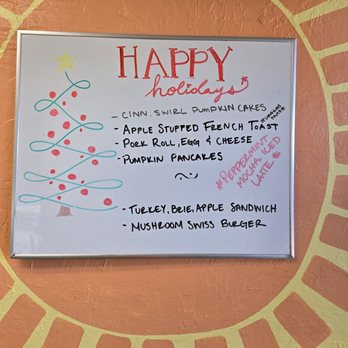 HAPPY
holidays
- CINN. SWIRL PUMPKIN CAKES
- APPLE STUFFED FRENCH TOAST
- PORK ROLL, EGG & CHEESE
- PUMPKIN PANCAKES
~
*PEPPERMINT
MOCHA ICED
LATTE *
- TURKEY, BRIE, APPLE SANDWICH
- MUSHROOM SWISS BURGER